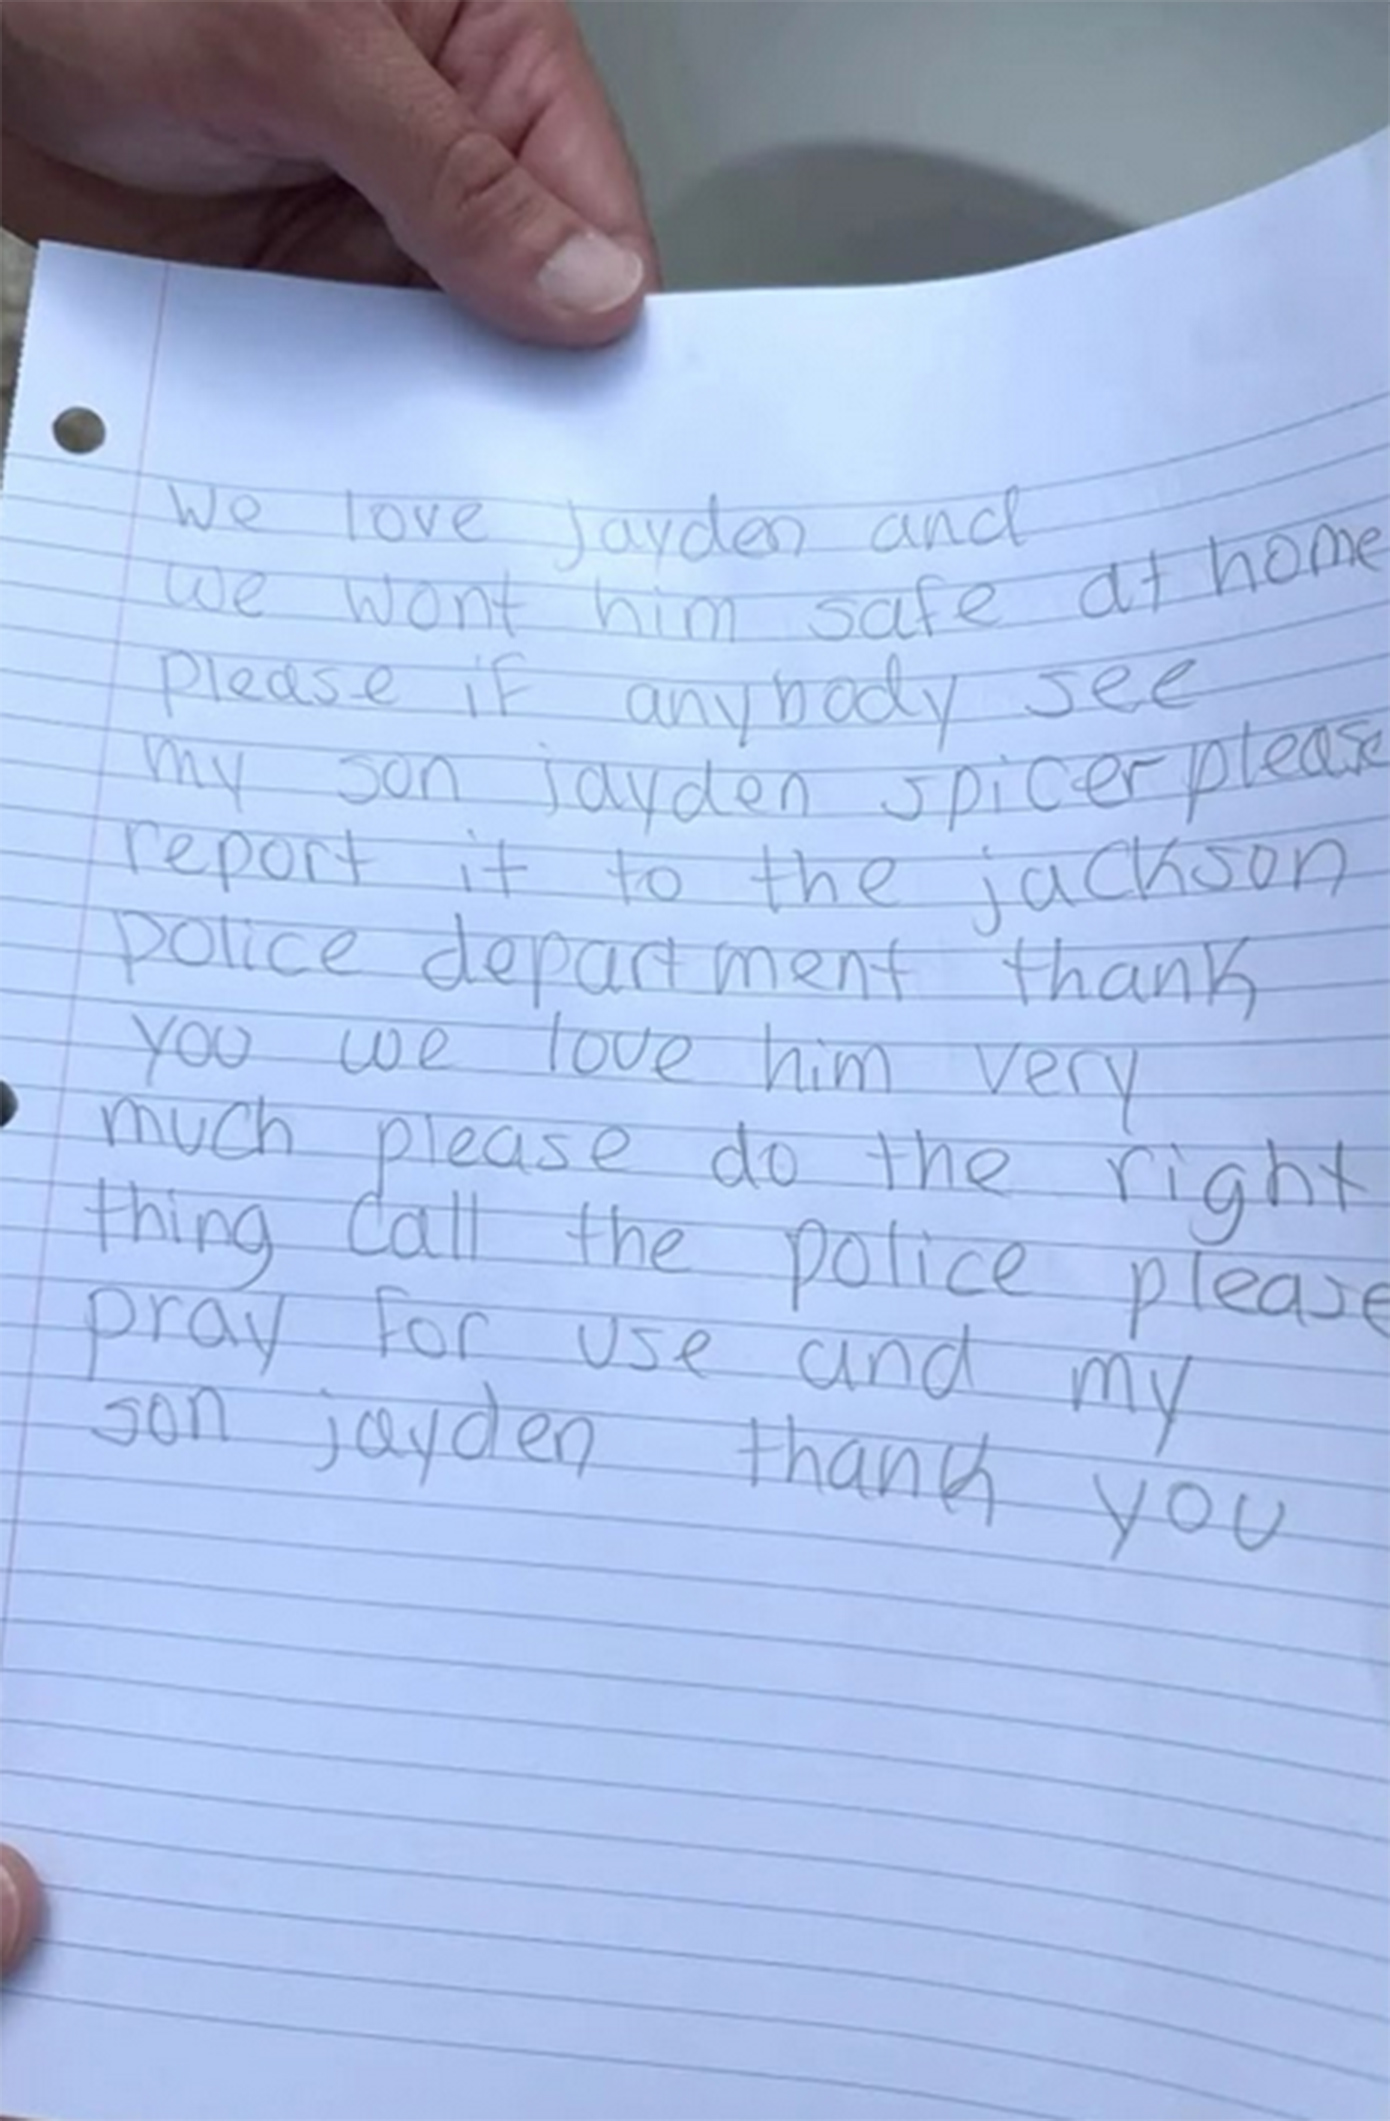 We love jayden and
we wont him safe at home
please if anybody see
my son jayden spicer please
report it to the jackson
police department thank
you we love him very
much please do the right
thing call the police please
pray for use and my
son jayden thank you